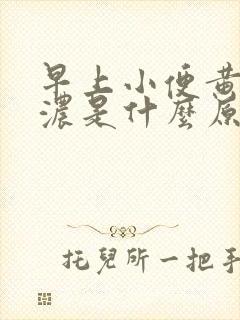 早上小便黄
濃是什麼原
托兒所一把手